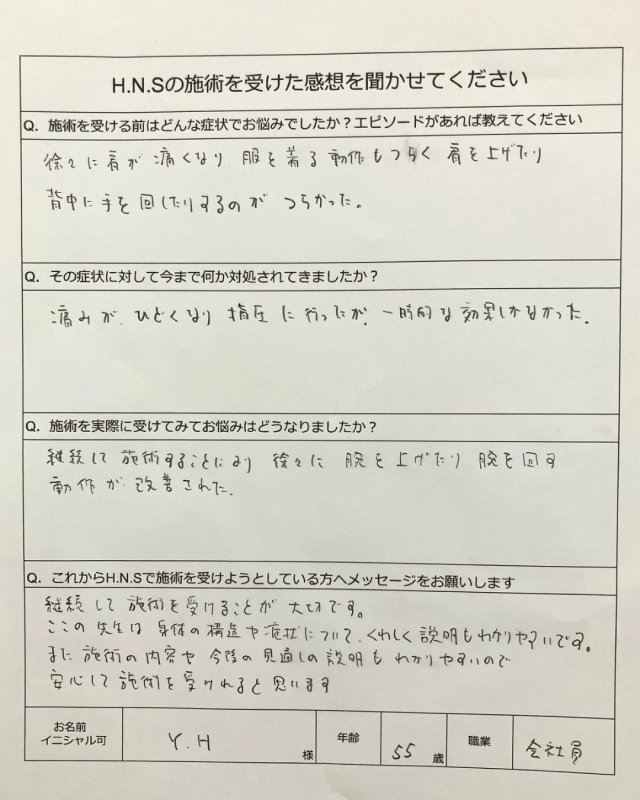 H.N.Sの施術を受けた感想を聞かせてください
Q. 施術を受ける前はどんな症状でお悩みでしたか？エピソードがあれば教えてください
徐々に肩が痛くなり 服を着る動作もつらく 肩を上げたり
背中に手を回したりするのが つらかった。
Q. その症状に対して今まで何か対処されてきましたか？
痛みが、ひどくなり 指圧に行ったが、一時的な効果しかなかった。
Q. 施術を実際に受けてみてお悩みはどうなりましたか？
継続して 施術することにより 徐々に 腕を上げたり 腕を回す
動作が改善された。
Q. これからH.N.Sで施術を受けようとしている方へメッセージをお願いします
継続して施術を受けることが大切です。
ここの先生は身体の構造や症状について、くわしく説明もわかりやすいです。
また施術の内容や今後の見通しの説明もわかりやすいので
安心して施術を受けれると思います
お名前 イニシャル可 Y.H 様 年齢 55 歳 職業 会社員